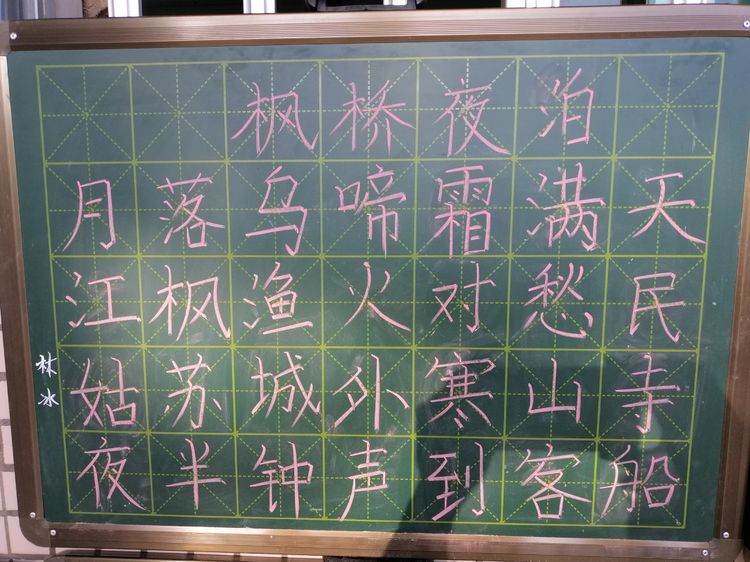 枫桥夜泊
月落乌啼霜满天
江枫渔火对愁民
姑苏城外寒山寺
夜半钟声到客船
林冰